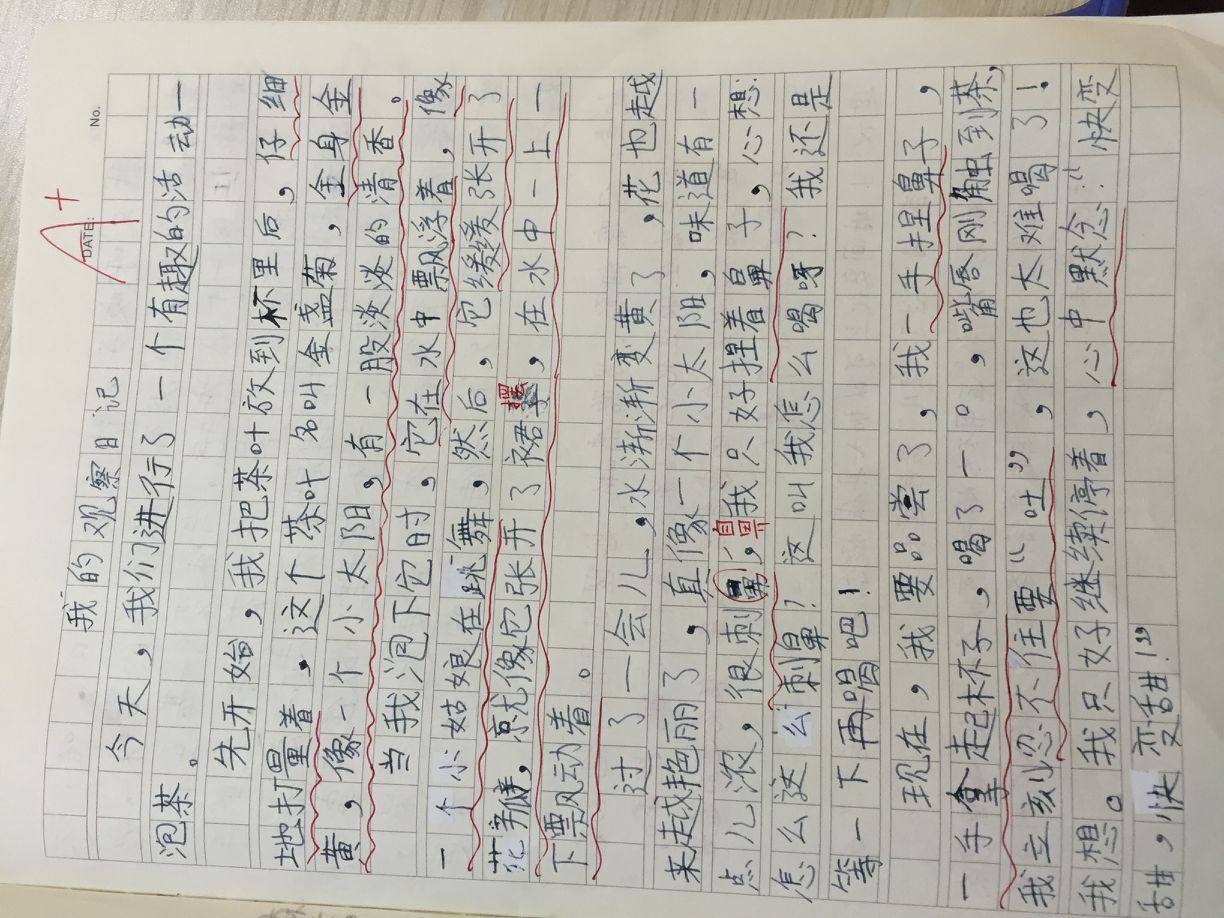 No.
DATE:
A+
我的观察日记
今天，我们进行了一个有趣的活动一
泡茶。
先开始，我把茶叶放到杯里后，仔细
地打量着，这个茶叶名叫金盏菊，全身金
黄，像一个小太阳，有一股淡淡的清香。
当我泡下它时，它在水中飘浮着，像
一个小姑娘在跳舞，然后，它缓缓张开了
花瓣，就像它张开了裙摆，在水中一上一
下飘动着。
过了一会儿，水渐渐变黄了，花也越
来越艳丽了，直像一个小太阳，味道有一
点儿浓，很刺鼻，我只好捏着鼻子，心想：
怎么这么刺鼻？这叫我怎么喝呀？我还是
等一下再喝吧！
现在，我要品尝了，我一手捏鼻子，
一手拿起杯子，喝了一。，嘴唇刚触到茶，
我立刻忍不住要“吐”，这也太难喝了！
我想。我只好继续停着，心中默念：“快变
甜，快变甜！”